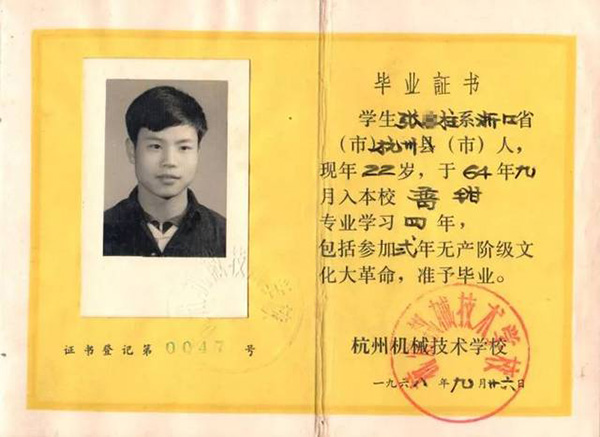 毕业証书
学生张 柱系浙江省
（市）杭州县（市）人，
现年22岁，于64年九
月入本校
专业学习四年，
包括参加弍年无产阶级文
化大革命，准予毕业。
杭州机械技术学校
一九六八年九月廿六日
证书登记第0047号
杭州机械技术学校